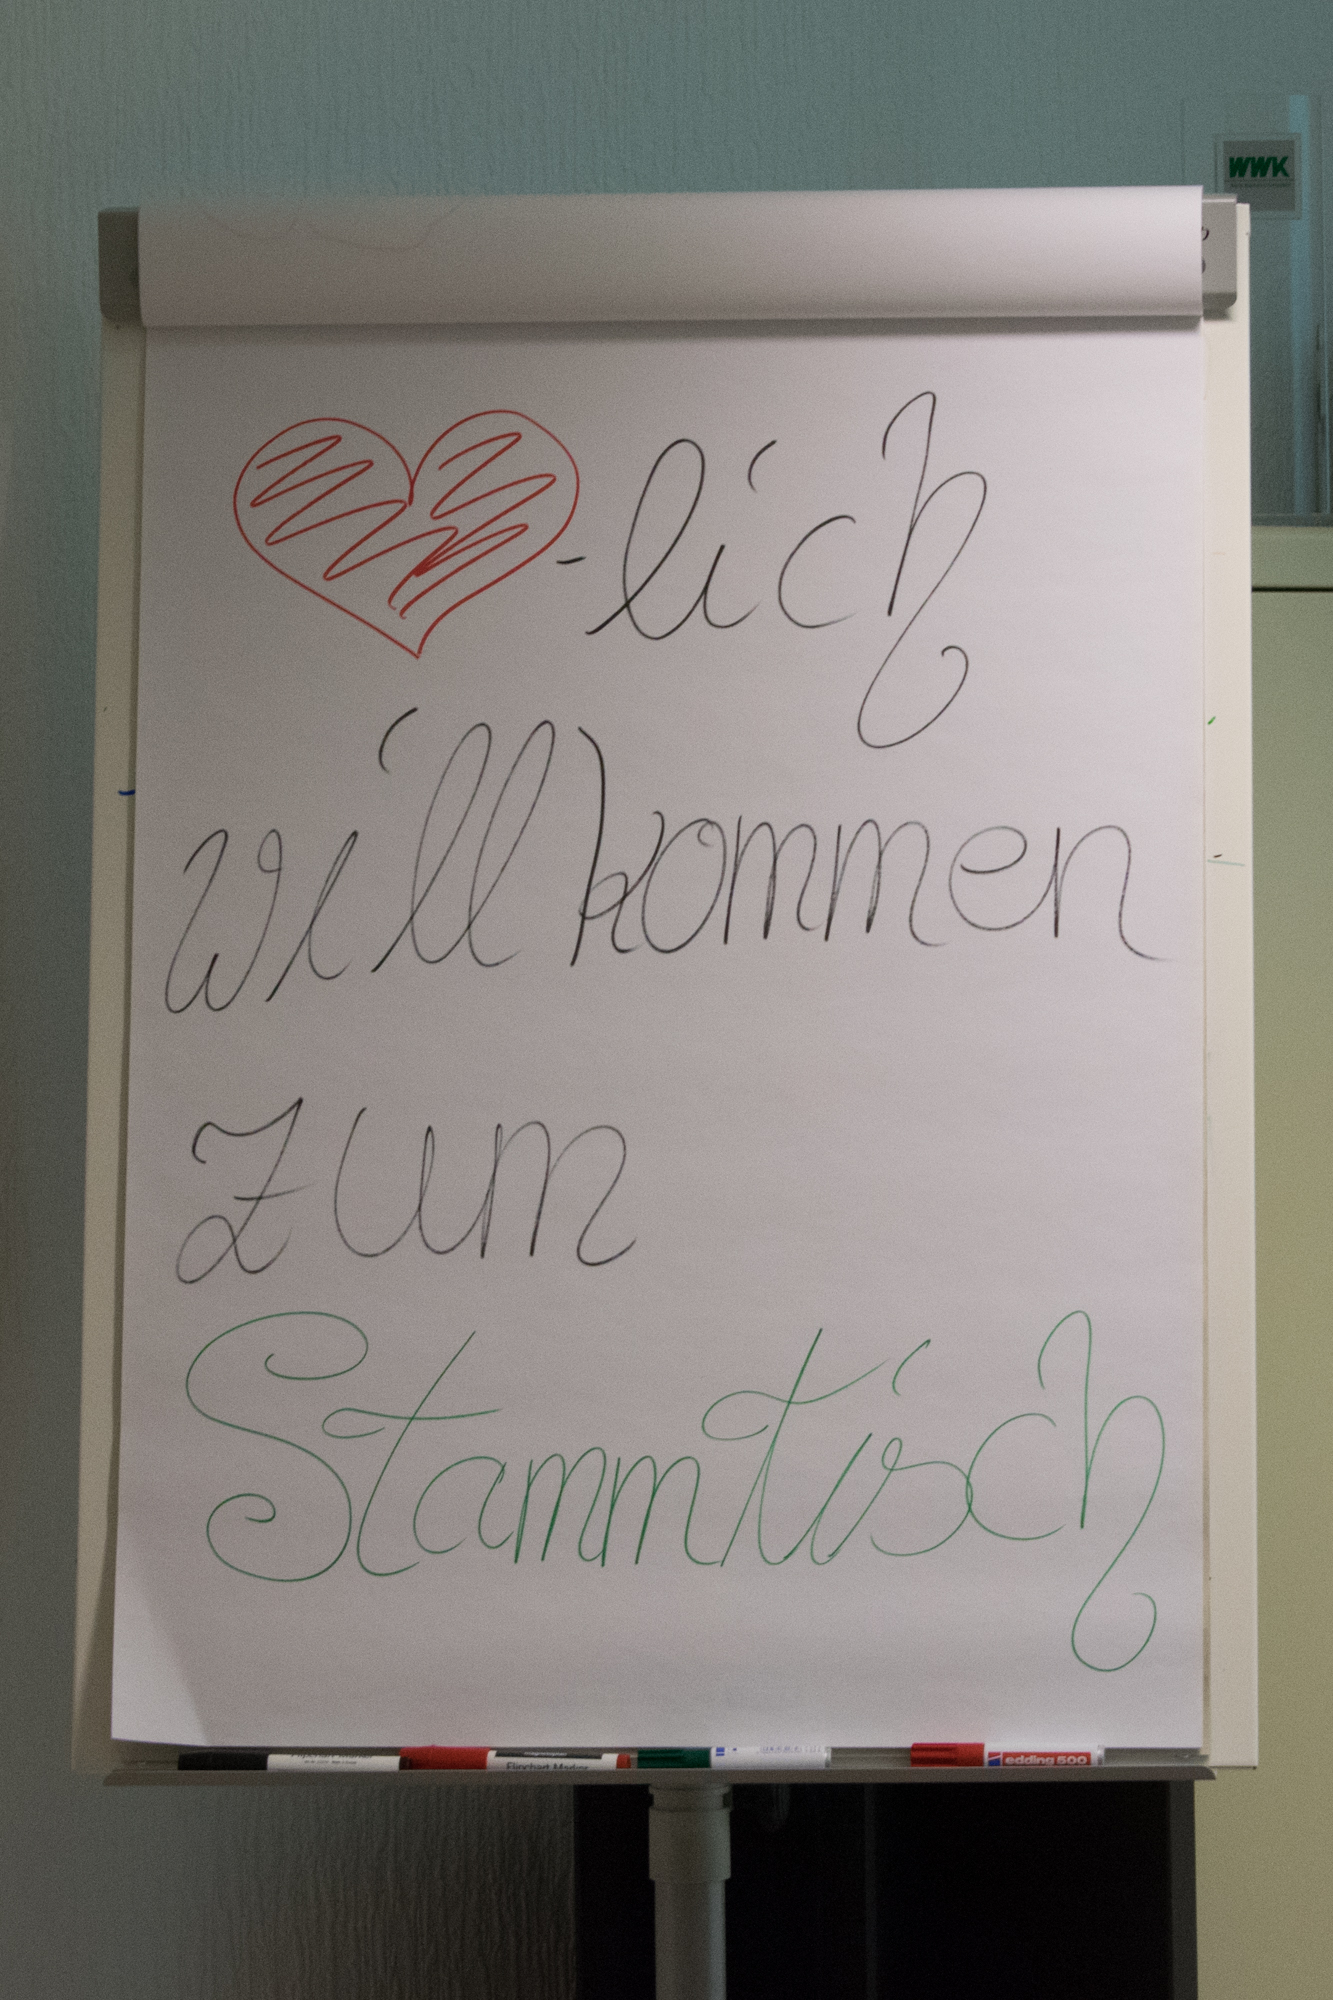 WWK
❤-lich
willkommen
zum
Stammtisch
Flipchart Marker
edding 500